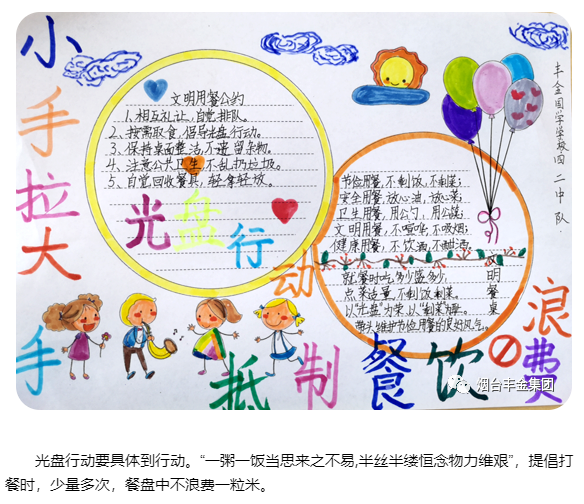 小手拉大手
抵制餐饮浪费
光盘行动
文明用餐公约
1、相互礼让,自觉排队。
2、按需取食,倡导光盘行动。
3、保持桌面整洁,不遗留杂物。
4、注意公共卫生,不乱扔垃圾。
5、自觉回收餐具,轻拿轻放。
节俭用餐,不剩饭,不剩菜;
安全用餐,放心油,放心菜;
卫生用餐,用公勺,用公筷;
文明用餐,不喧哗,不吸烟;
健康用餐,不饮酒,不酗酒。
文明餐桌
就餐时吃多少盛多少,
点菜适量,不剩饭剩菜。
以“光盘”为荣,以“剩菜”为辱。
带头维护节俭用餐的良好风气。
丰金国学学校四二中队
烟台丰金集团
光盘行动要具体到行动。“一粥一饭当思来之不易,半丝半缕恒念物力维艰”，提倡打
餐时，少量多次，餐盘中不浪费一粒米。